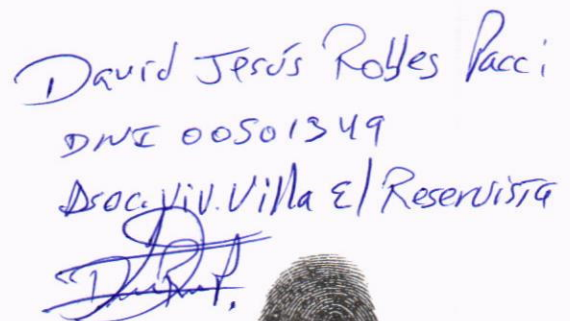 David Jesús Robles Pacci
DNI 00501349
Asoc. Viv. Villa El Reservista